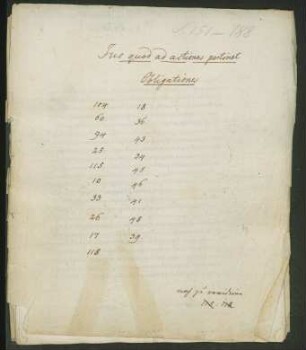 S. 151 – 188
Jus quod ad actiones pertinet
Obligatione
104 18
60 36
94 43
25 34
115 45
10 46
33 41
26 48
17 39
118